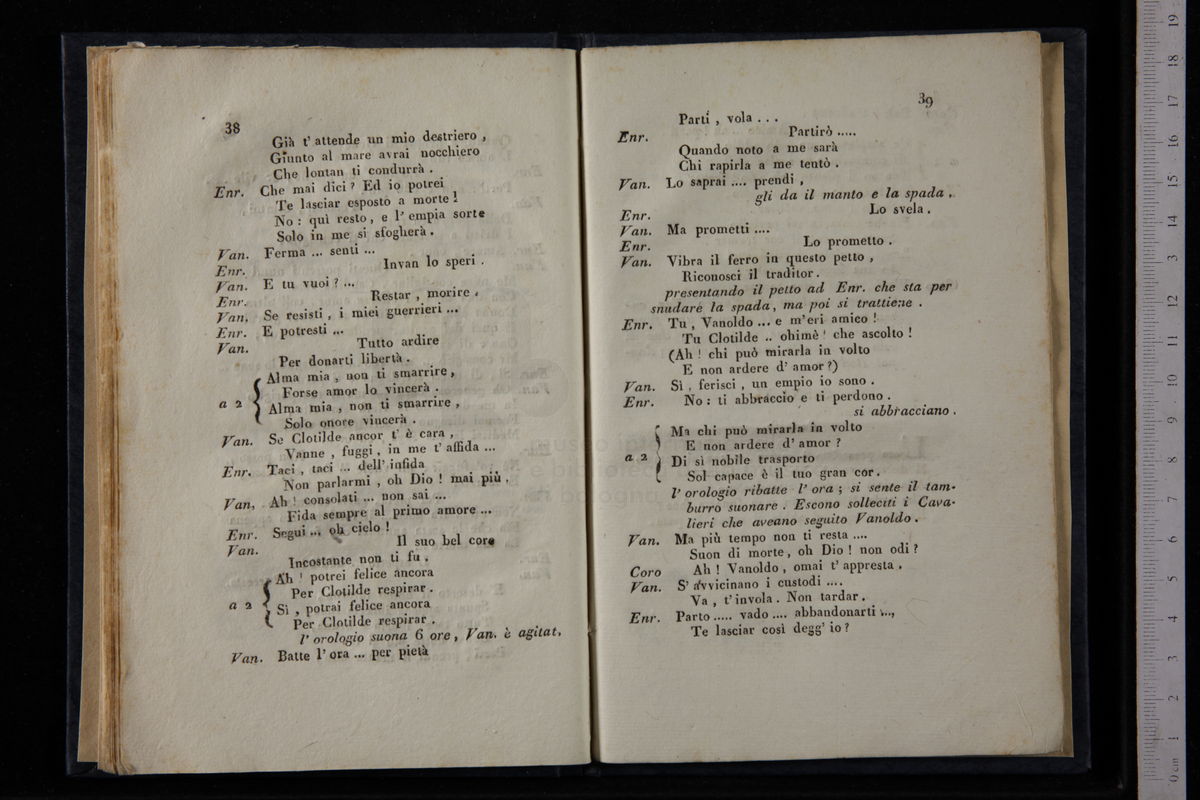 38
Già t' attende un mio destriero ,
Giunto al mare avrai nocchiero
Che lontan ti condurrà .
Enr. Che mai dici ? Ed io potrei
Te lasciar esposto a morte !
No : quì resto , e l' empia sorte
Solo in me si sfogherà .
Van. Ferma ... senti ...
Enr. Invan lo speri .
Van. E tu vuoi ? ...
Enr. Restar , morire .
Van. Se resisti , i miei guerrieri ...
Enr. E potresti ...
Van. Tutto ardire
Per donarti libertà .
Alma mia , non ti smarrire ,
Forse amor lo vincerà .
a 2 Alma mia , non ti smarrire ,
Solo onore vincerà .
Van. Se Clotilde ancor t' è cara ,
Vanne , fuggi , in me t' affida ...
Enr. Taci , taci ... dell' infida
Non parlarmi , oh Dio ! mai più .
Van. Ah ! consolati ... non sai ...
Fida sempre al primo amore ...
Enr. Segui ... oh cielo !
Van. Il suo bel core
Incostante non ti fu .
Ah ! potrei felice ancora
Per Clotilde respirar .
a 2 Sì , potrai felice ancora
Per Clotilde respirar .
l' orologio suona 6 ore , Van. è agitat.
Van. Batte l' ora ... per pietà
39
Parti , vola . . .
Enr. Partirò .....
Quando noto a me sarà
Chi rapirla a me tentò .
Van. Lo saprai .... prendi ,
gli da il manto e la spada .
Enr. Lo svela .
Van. Ma prometti ....
Enr. Lo prometto .
Van. Vibra il ferro in questo petto ,
Riconosci il traditor .
presentando il petto ad Enr. che sta per
snudare la spada , ma poi si trattiene .
Enr. Tu , Vanoldo ... e m'eri amico !
Tu Clotilde .. ohimè ! che ascolto !
(Ah ! chi può mirarla in volto
E non ardere d' amor ?)
Van. Sì , ferisci , un empio io sono .
Enr. No : ti abbraccio e ti perdono .
si abbracciano .
Ma chi può mirarla in volto
E non ardere d' amor ?
a 2 Di sì nobile trasporto
Sol capace è il tuo gran cor .
l' orologio ribatte l' ora ; si sente il tam-
burro suonare . Escono solleciti i Cava-
lieri che aveano seguito Vanoldo .
Van. Ma più tempo non ti resta ....
Suon di morte , oh Dio ! non odi ?
Coro Ah ! Vanoldo , omai t' appresta .
Van. S' avvicinano i custodi ....
Va , t' invola . Non tardar .
Enr. Parto ..... vado .... abbandonarti ....,
Te lasciar così degg' io ?